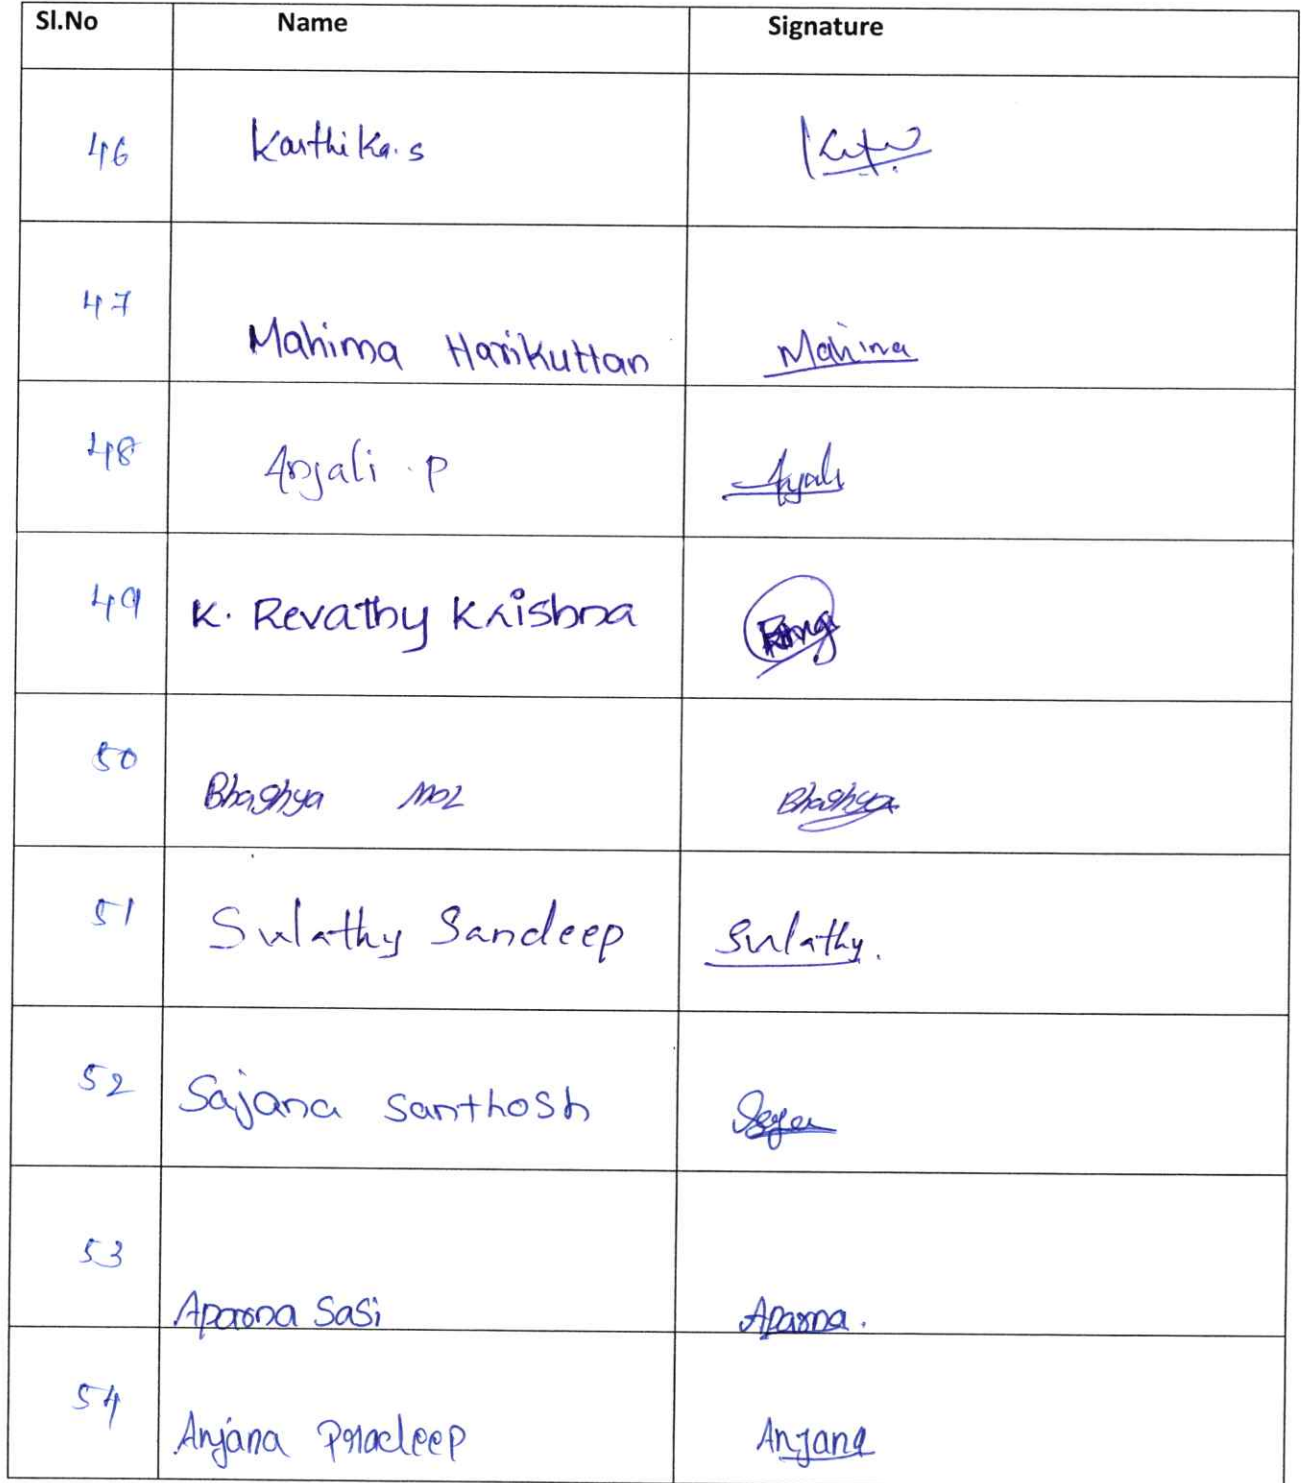 Sl.No Name Signature
46 Karthika.s
47 Mahima Harikuttan Mahima
48 Anjali . P Anjali
49 K. Revathy Krishna
50 Bhaghya Mol Bhaghya
51 Sulathy Sandeep Sulathy.
52 Sajana Santhosh
53 Aparna Sasi Aparna.
54 Anjana Pradeep Anjana